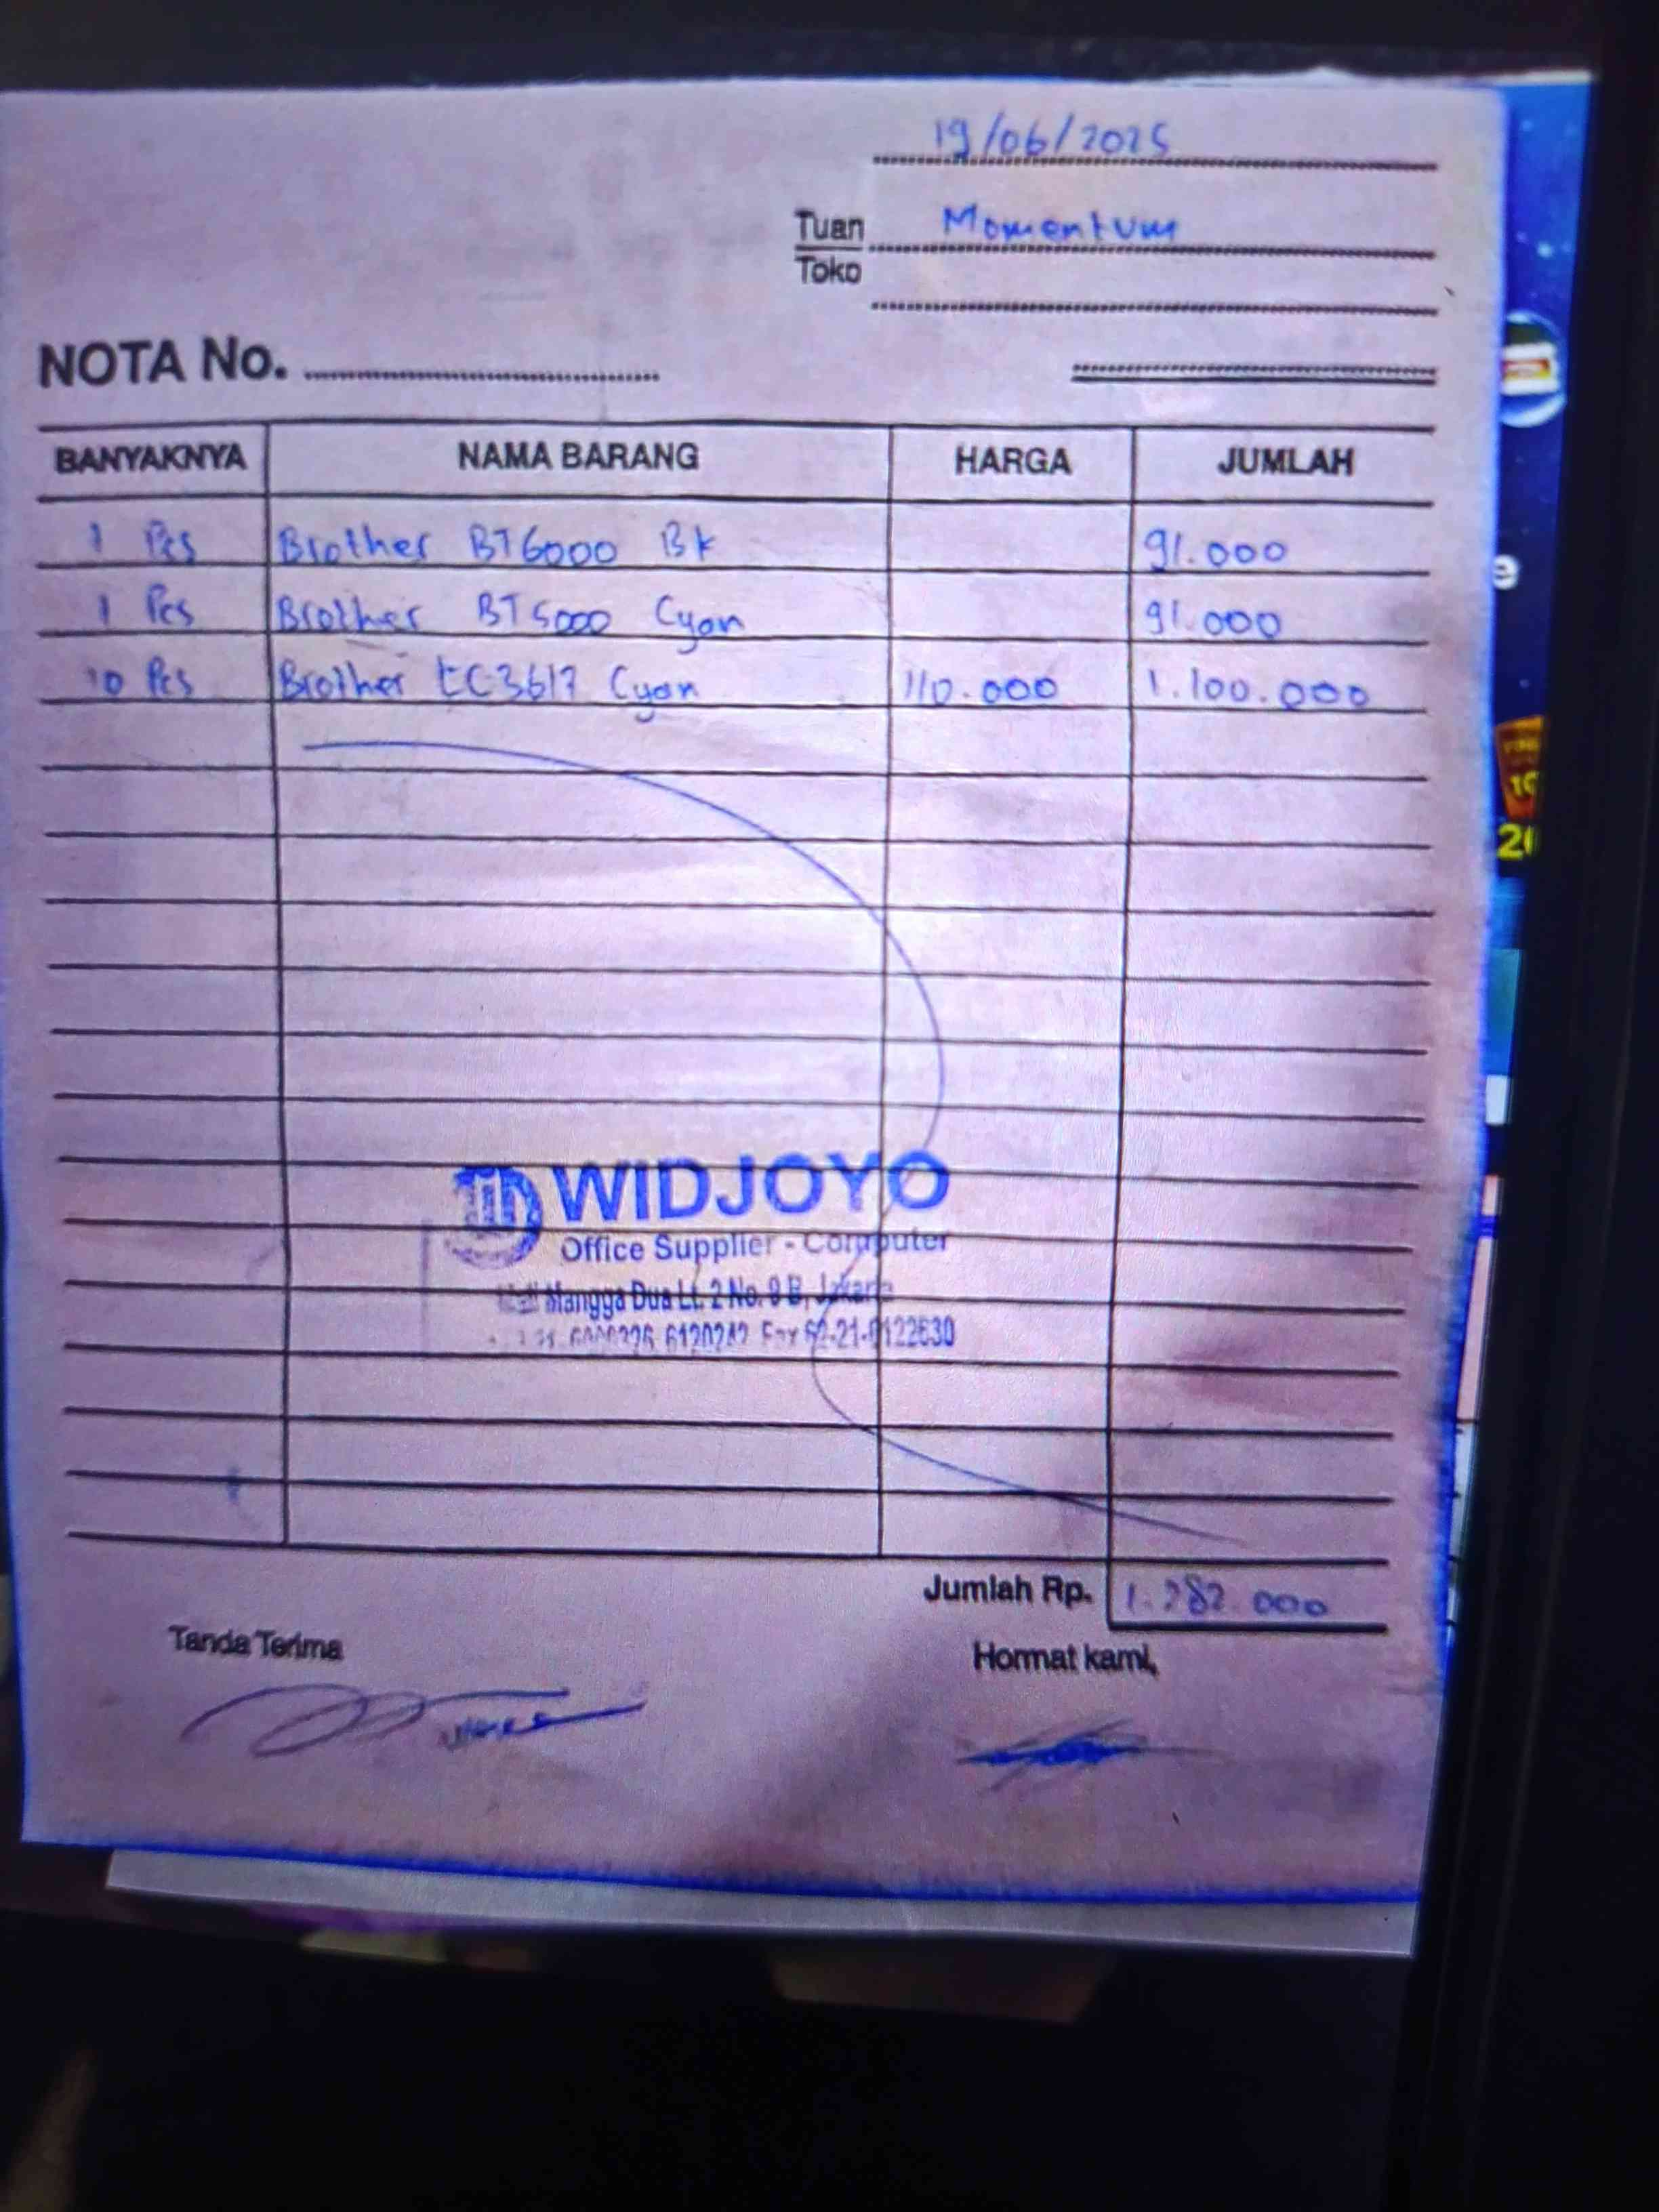 19/06/2025
Tuan Momentum
Toko
NOTA No.
BANYAKNYA NAMA BARANG HARGA JUMLAH
1 Pcs Brother BT6000 Bk 91.000
1 Pcs Brother BT5000 Cyan 91.000
10 Pcs Brother LC3617 Cyan 110.000 1.100.000
WIDJOYO
Office Supplier - Computer
Mangga Dua Lt. 2 No. 8 B, Jakarta
Fax 62-21-6122630
Jumlah Rp. 1.282.000
Tanda Terima Hormat kami,